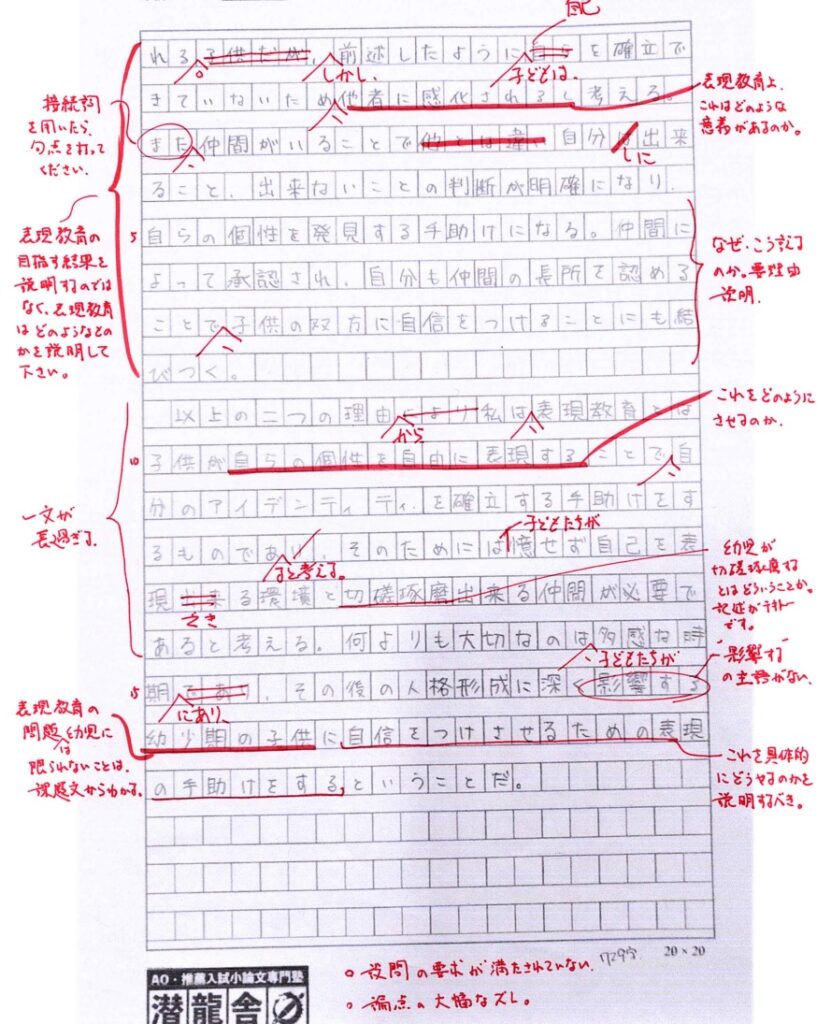 自己
れる子供だが、前述したように自らを確立で
。
しかし、
子どもは、
きていないため他者に感化されると考える。
表現教育上、
これはどのような
意義があるのか。
接続詞
を用いたら、
句点を打って
ください。
また仲間がいることで他とは違い自分は出来
しに
ること、出来ないことの判断が明確になり、
5
自らの個性を発見する手助けになる。仲間に
よって承認され、自分も仲間の長所を認める
ことで子供の双方に自信をつけることにも結
びつく。
表現教育の
目指す結果を
説明するのでは
なく、表現教育
はどのようなもの
かを説明して
下さい。
なぜ、こう言える
のか。要理由
説明。
以上の二つの理由により私は表現教育とは
から
これをどのように
させるのか。
10
子供が自らの個性を自由に表現することで自
分のアイデンティティ、を確立する手助けをす
一文が
長過ぎる。
子どもたちが
るものであり、そのためには憶せず自己を表
ると考える。
現出来る環境と切磋琢磨出来る仲間が必要で
でき
幼児が
切磋琢磨する
とはどういうことか。
です。
あると考える。何よりも大切なのは多感な時
子どもたちが
"影響する"
の主語がない。
15
期であり、その後の人格形成に深く影響する
にあり、
表現教育の
問題は幼児に
限られないことは、
課題文からわかる。
幼少期の子供に自信をつけさせるための表現
の手助けをする、ということだ。
これを具体的
にどうするのかを
説明するべき。
729字
20×20
○設問の要求が満たされていない。
○論点の大幅なズレ。
AO・推薦入試小論文専門塾
潜龍舎